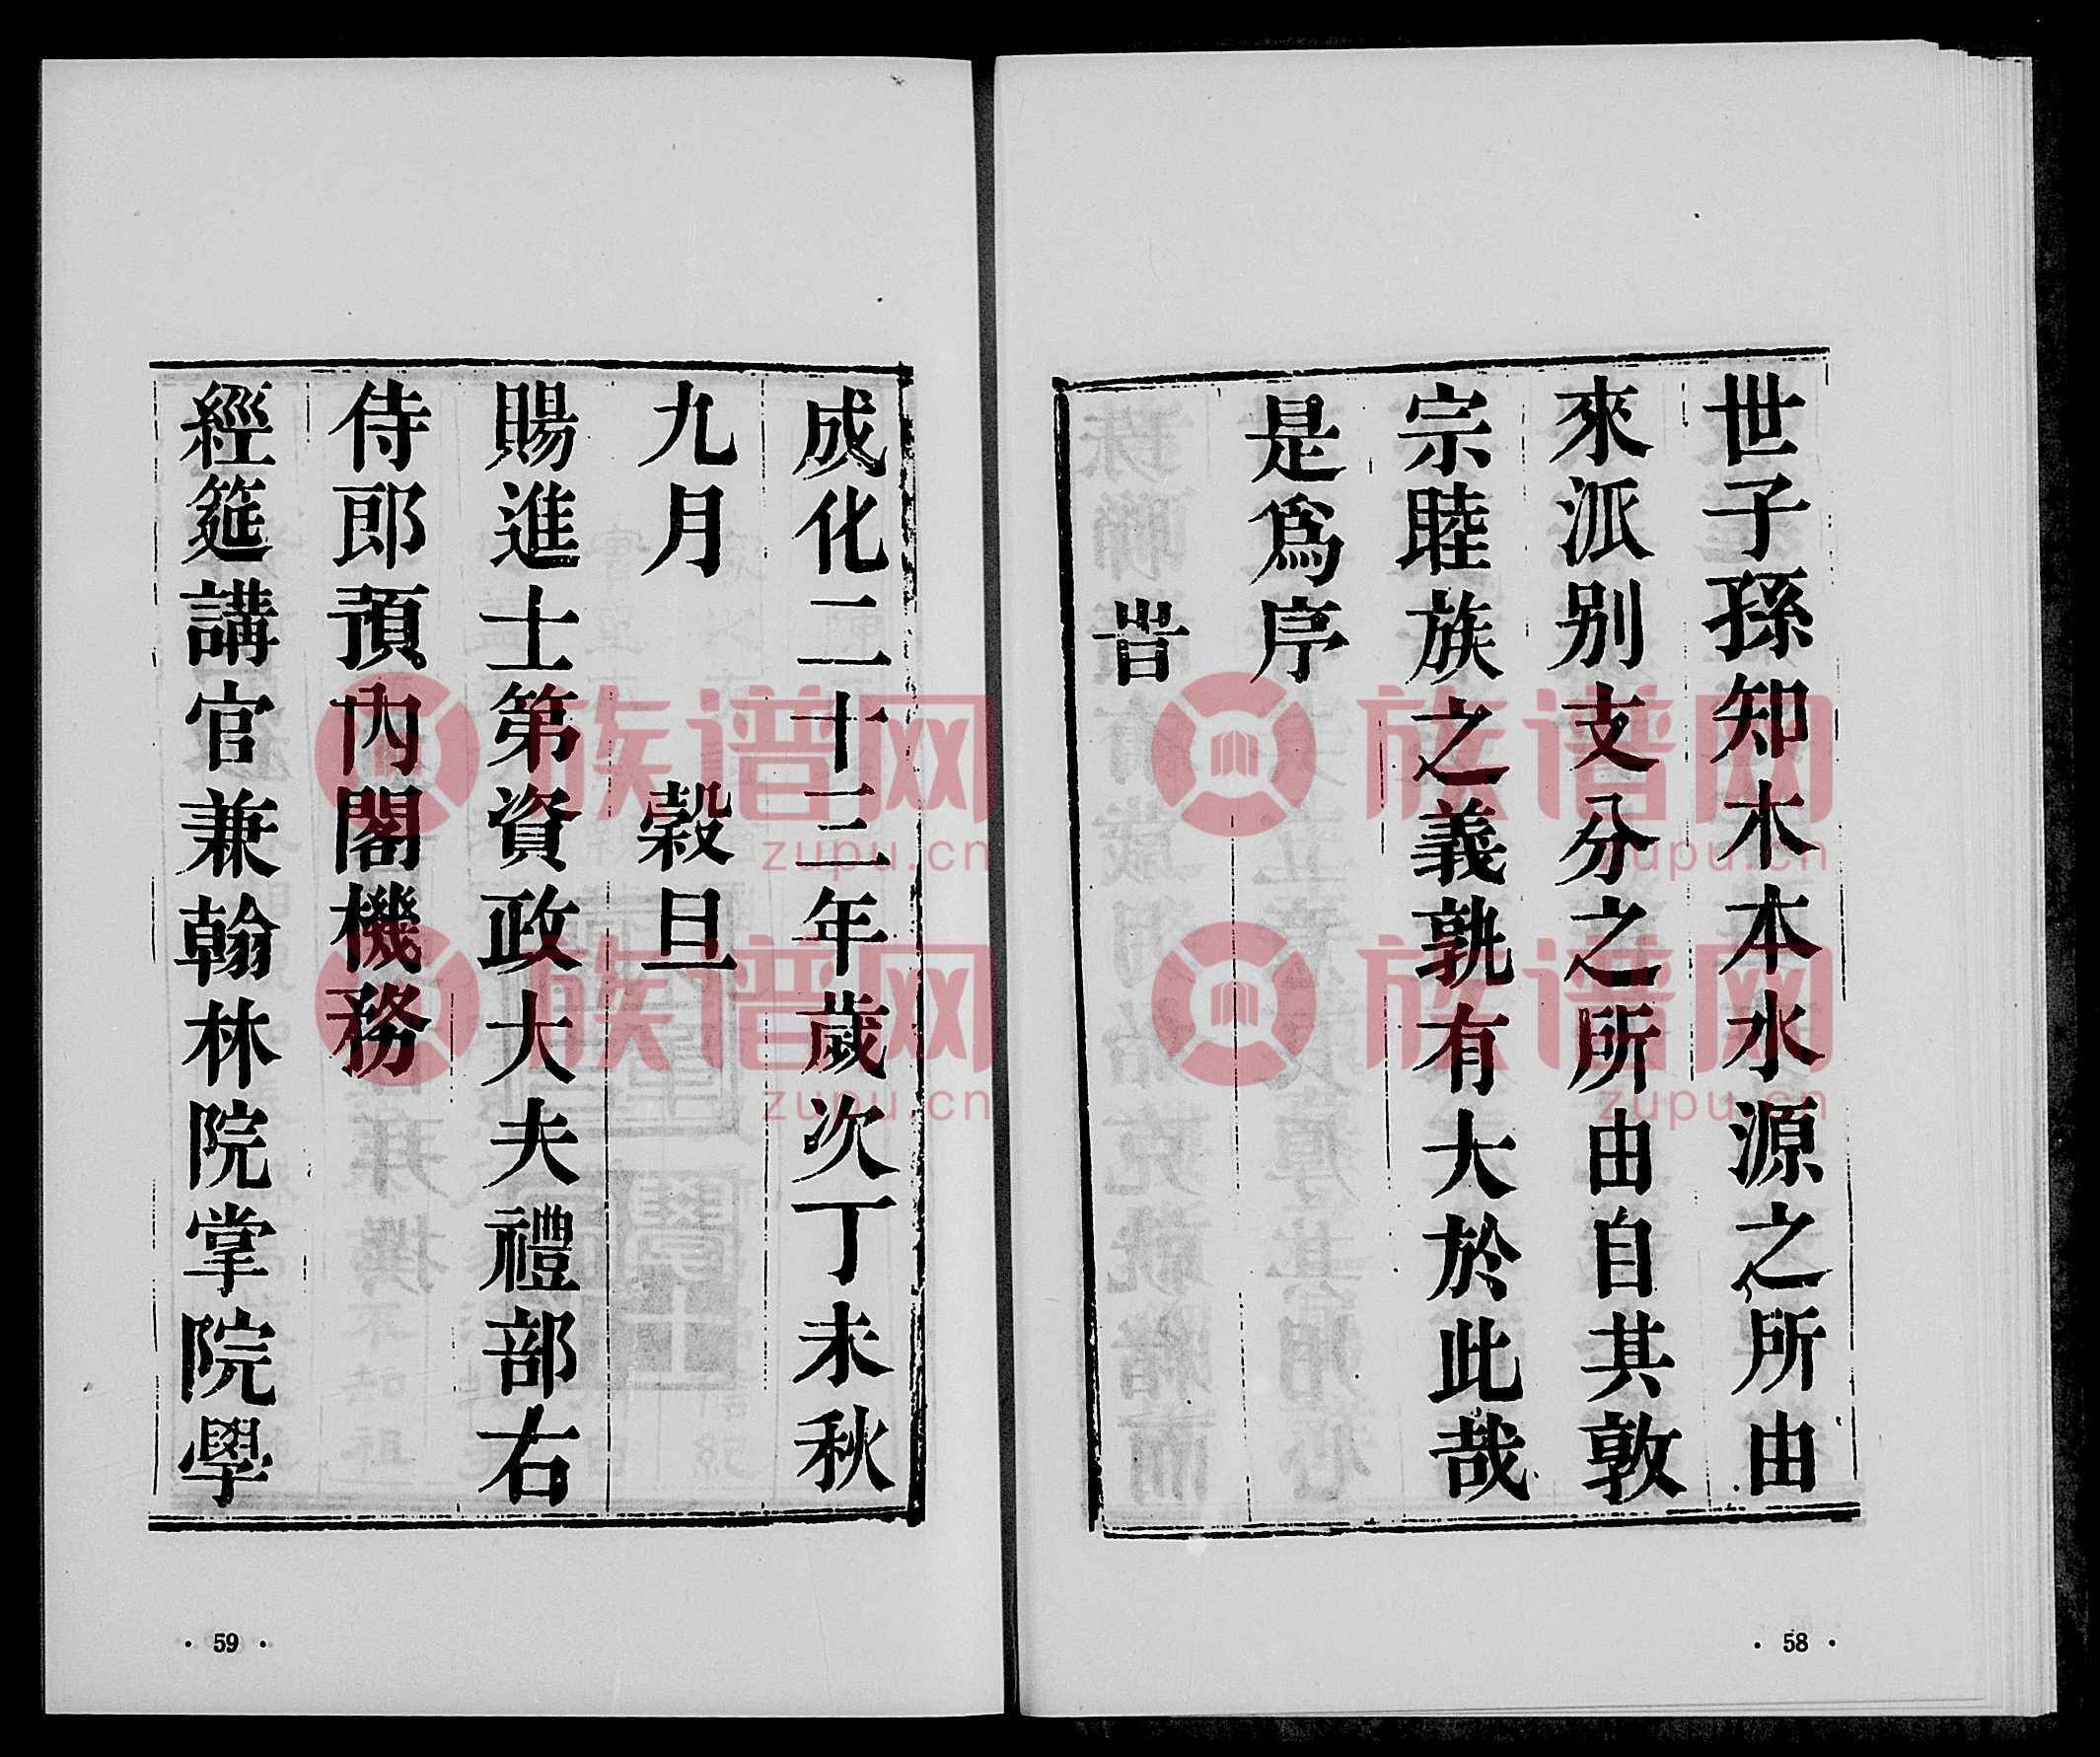 世子孫知木本水源之所由
來派别支分之所由自其敦
宗睦族之義孰有大於此哉
是爲序
旹
· 58 ·
成化二十三年歲次丁未秋
九月 穀旦
賜進士第資政大夫禮部右
侍郎預內閣機務
經筵講官兼翰林院掌院學
· 59 ·
族谱网
zupu.cn
族谱网
zupu.cn
族谱网
zupu.cn
族谱网
zupu.cn